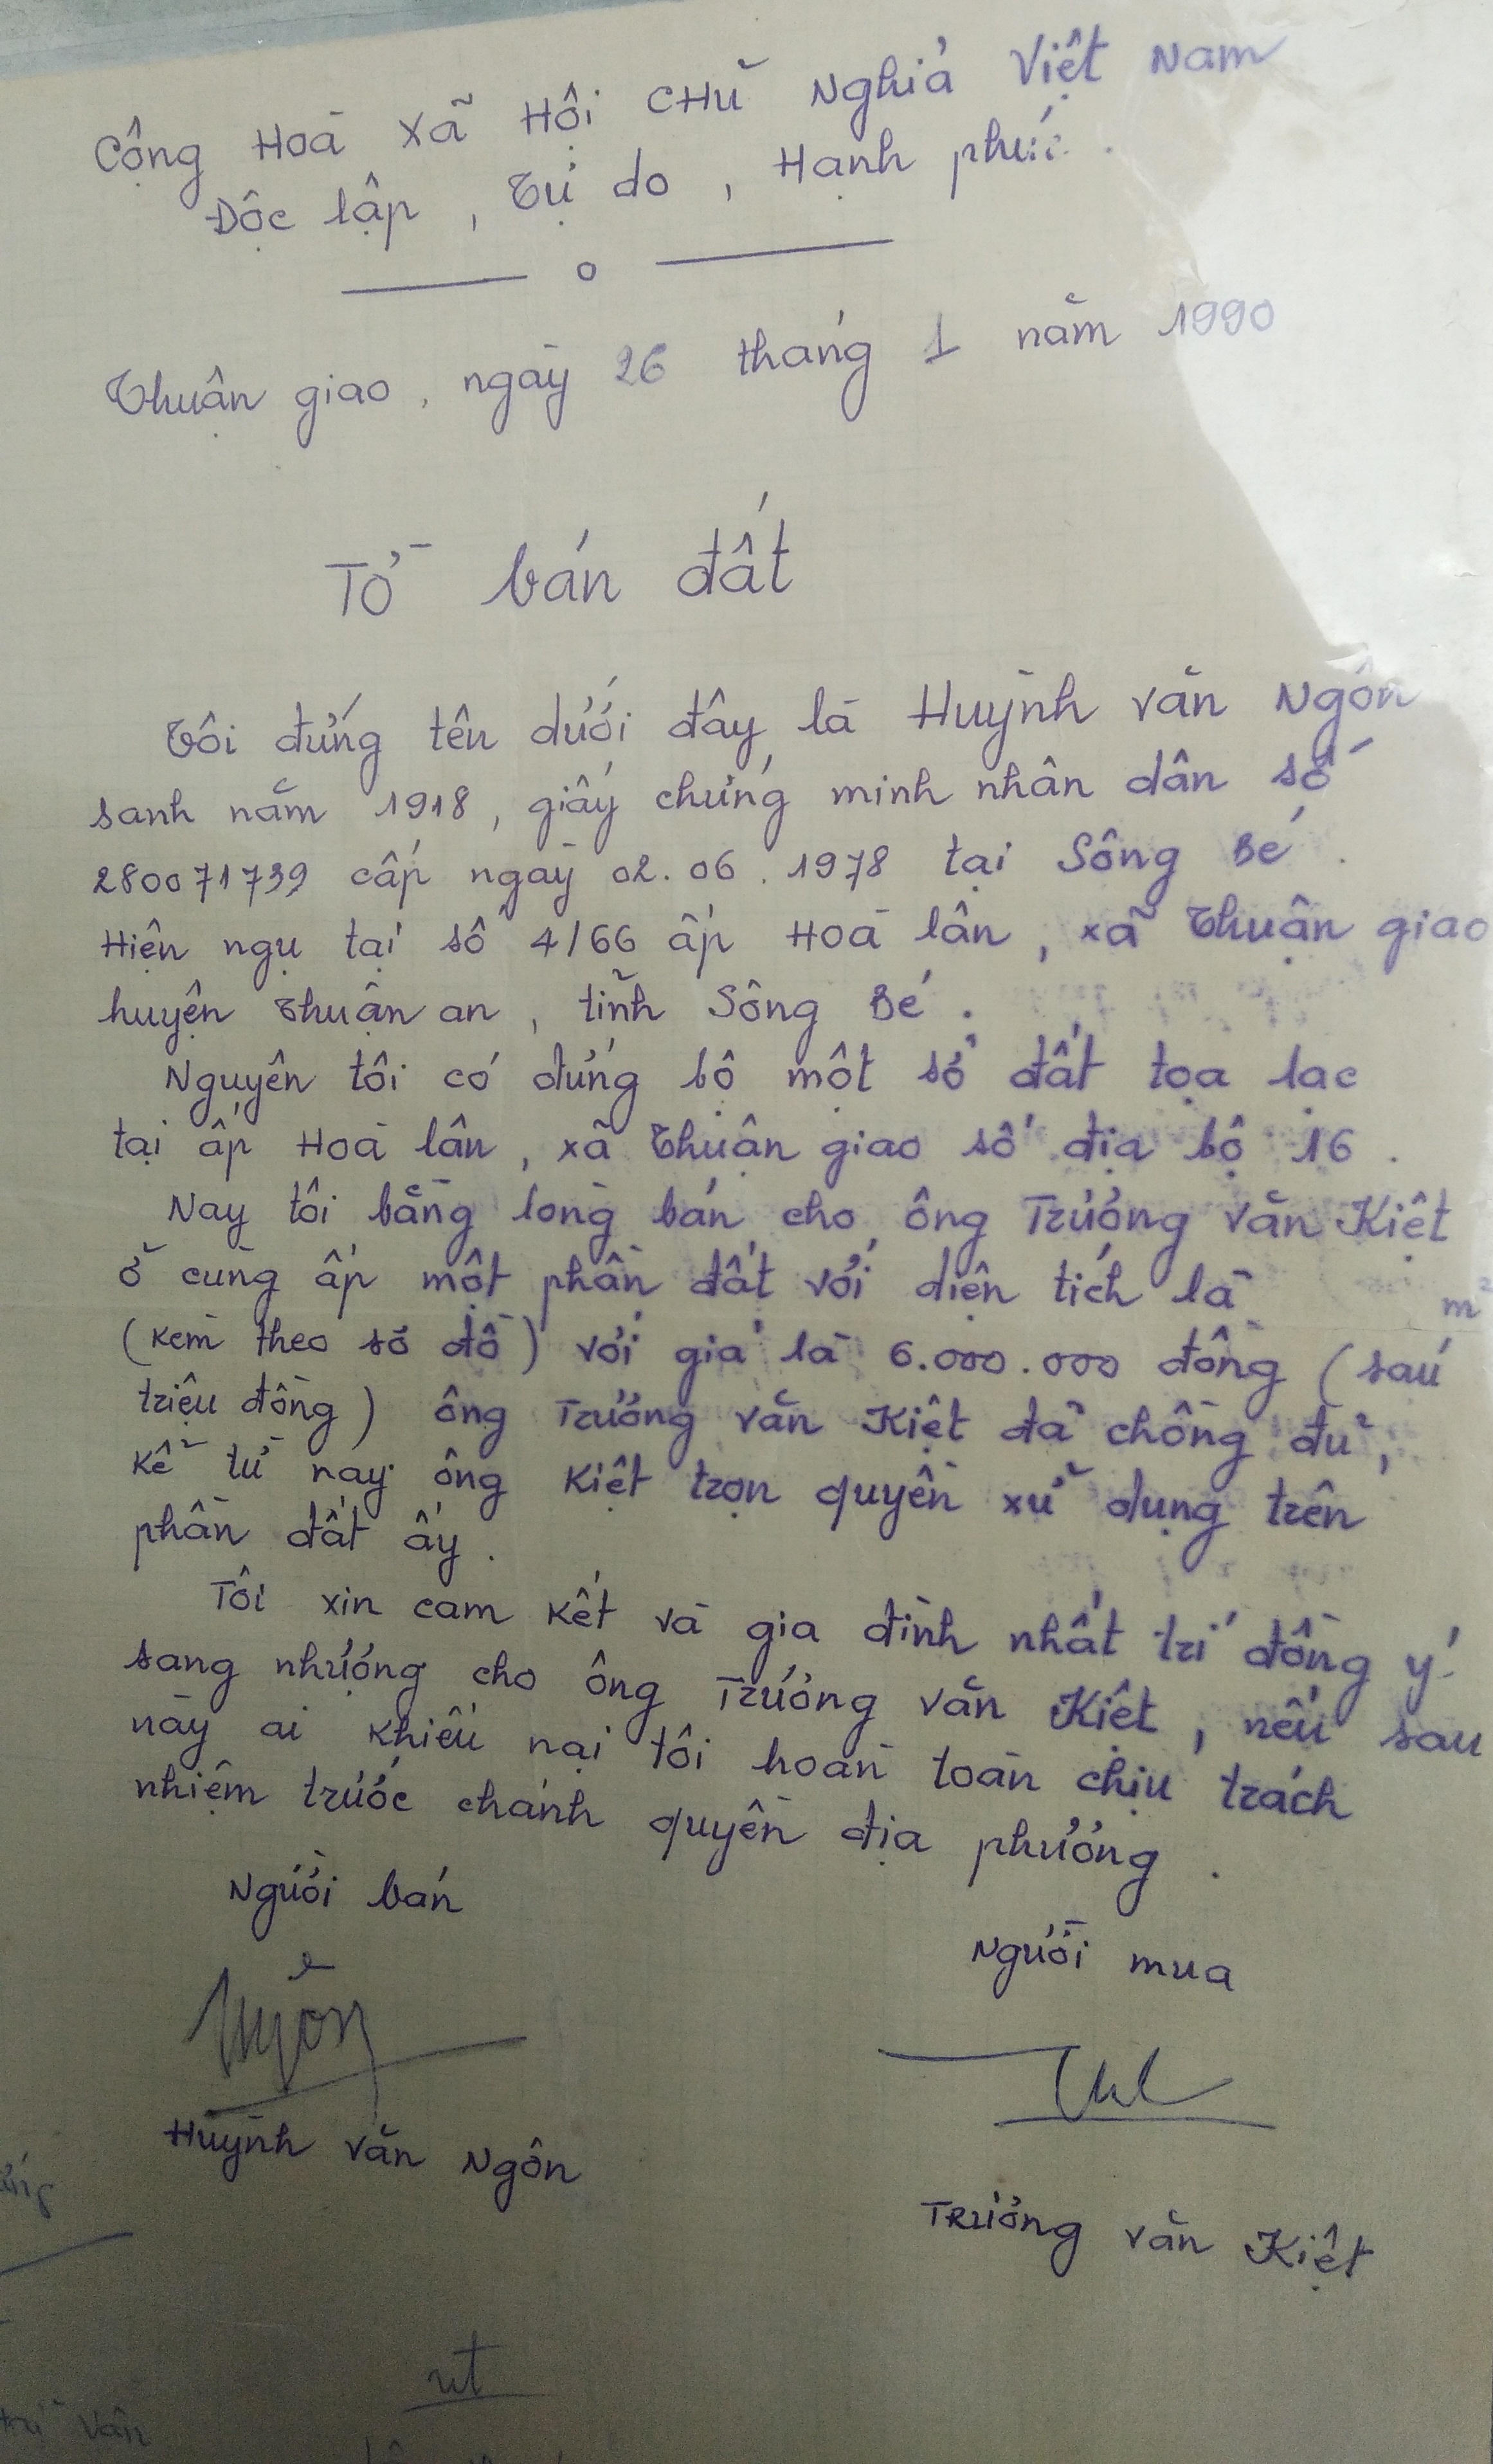 Cộng Hoà Xã Hội CHủ Nghĩa Việt Nam
Độc lập, Tự do, Hạnh phúc.
o
Thuận giao, ngày 26 tháng 1 năm 1990
Tờ bán đất
Tôi đứng tên dưới đây là Huỳnh Văn Ngôn
sanh năm 1918, giấy chứng minh nhân dân số
280071739 cấp ngày 02.06.1978 tại Sông Bé.
Hiện ngụ tại số 4/66 ấp Hoà lân, xã Thuận giao
huyện Thuận an, tỉnh Sông Bé.
Nguyên tôi có đứng bộ một số đất tọa lạc
tại ấp Hoà lân, xã Thuận giao số địa bộ 16.
Nay tôi bằng lòng bán cho ông Trương Văn Kiệt
ở cùng ấp một phần đất với diện tích là m²
(kèm theo sơ đồ) với giá là 6.000.000 đồng (sáu
triệu đồng) ông Trương Văn Kiệt đã chồng đủ,
kể từ nay ông Kiệt trọn quyền xử dụng trên
phần đất ấy.
Tôi xin cam kết và gia đình nhất trí đồng ý
sang nhượng cho ông Trương Văn Kiệt, nếu sau
này ai khiếu nại tôi hoàn toàn chịu trách
nhiệm trước chánh quyền địa phương.
Người bán
Người mua
Ngôn
Huỳnh Văn Ngôn
Trương Văn Kiệt